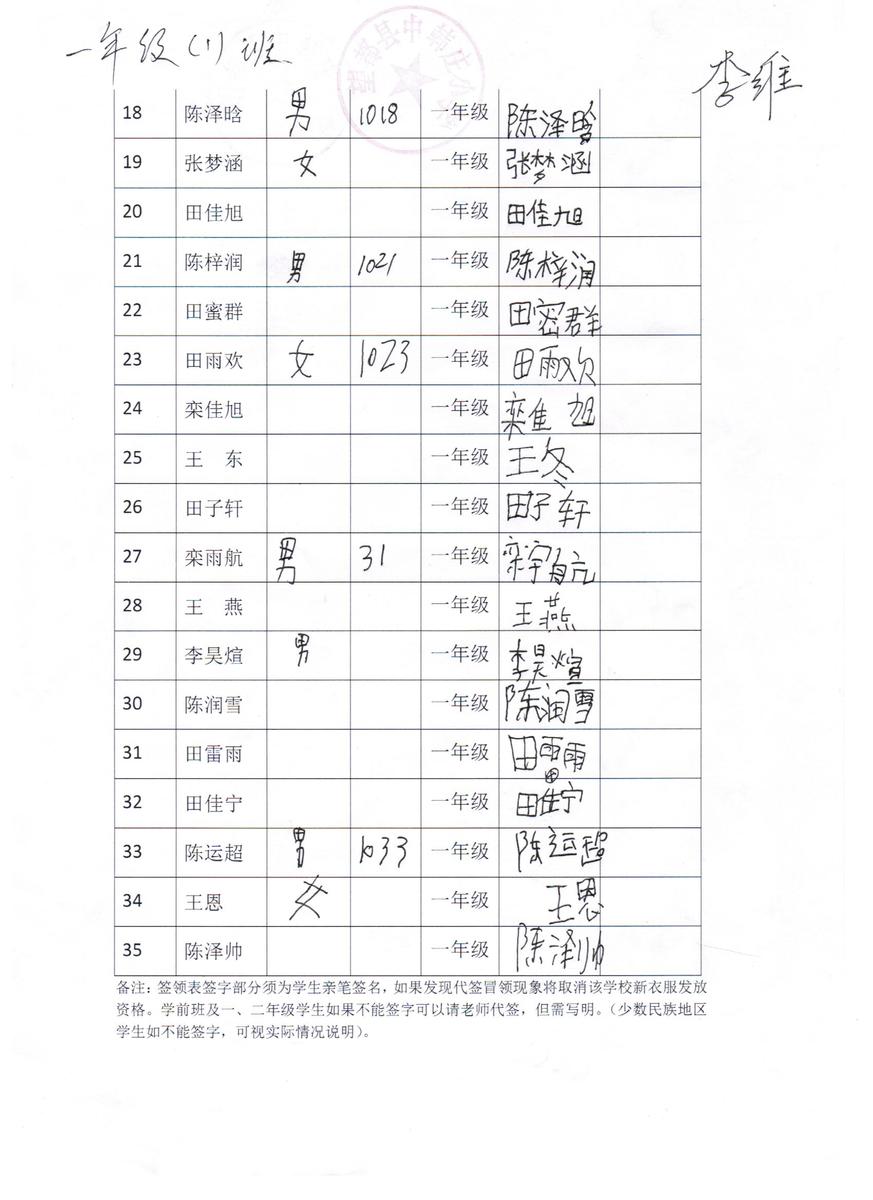 一年级(1)班
望都县中韩庄小学
李维
18 陈泽晗 男 1018 一年级 陈泽晗
19 张梦涵 女 一年级 张梦涵
20 田佳旭 一年级 田佳旭
21 陈梓润 男 1021 一年级 陈梓润
22 田蜜群 一年级 田密群
23 田雨欢 女 1023 一年级 田雨欢
24 栾佳旭 一年级 栾佳旭
25 王 东 一年级 王冬
26 田子轩 一年级 田子轩
27 栾雨航 男 31 一年级 栾宇航
28 王 燕 一年级 王燕
29 李昊煊 男 一年级 李昊煊
30 陈润雪 一年级 陈润雪
31 田雷雨 一年级 田雷雨
32 田佳宁 一年级 田佳宁
33 陈运超 男 1033 一年级 陈运超
34 王恩 女 一年级 王恩
35 陈泽帅 一年级 陈泽帅
备注：签领表签字部分须为学生亲笔签名，如果发现代签冒领现象将取消该学校新衣服发放
资格。学前班及一、二年级学生如果不能签字可以请老师代签，但需写明。（少数民族地区
学生如不能签字，可视实际情况说明）。